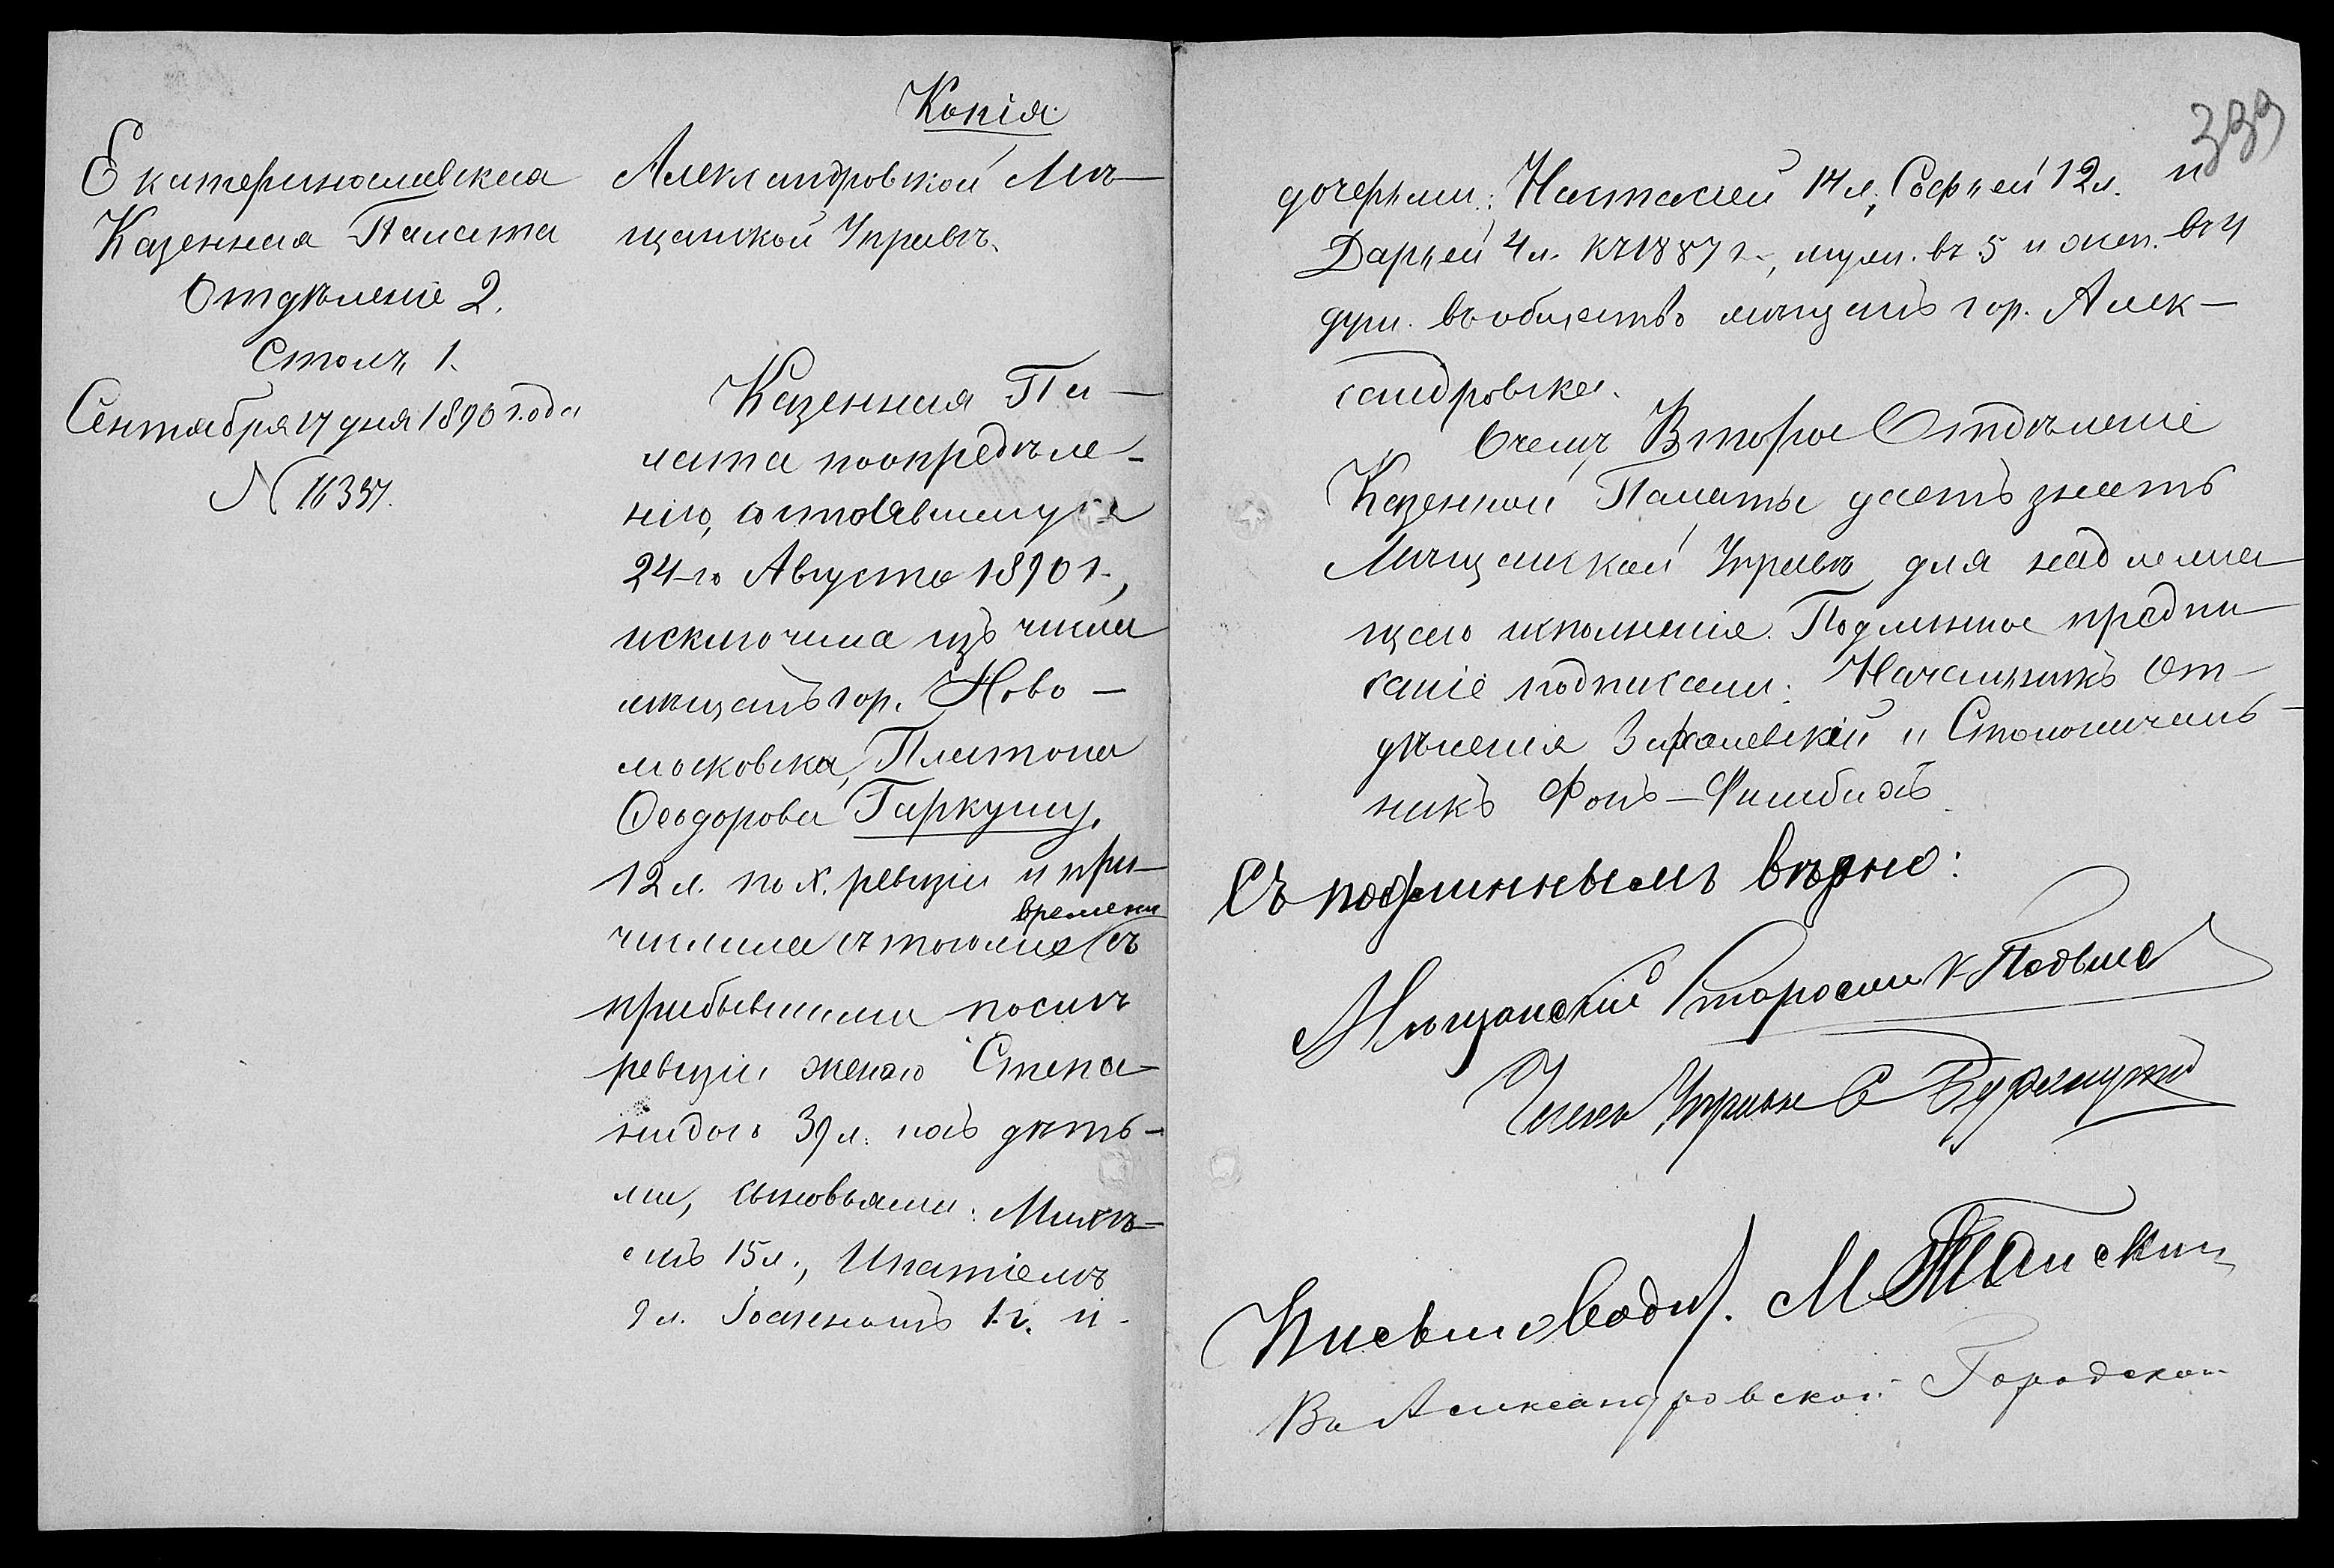 Копія
Екатеринославская
Казенная Палата
Отдѣленіе 2.
Столъ 1.
Сентября 17 дня 1890 года
N 16337.
Александровской Мѣ-
щанской Управѣ.
Казенная Па-
лата по опредѣле-
нію, состоявшемуся
24-го Августа 1890 г.,
исключила изъ числа
мѣщанъ гор. Ново-
московска, Платона
Ѳеодорова Гаркушу,
12 л. по X. ревизіи и при-
времени
числила съ того же съ
прибывшими послѣ
ревизіи женою Степа-
нидою 39 л. и съ дѣть-
ми, сыновьями: Михѣ-
емъ 15 л., Игнатіемъ
9 л. 1 г. и
339
дочерьми: Настасіей 14 л., Софіей 12 л. и
Дарьей 4 л. къ 1887 г., муж. въ 5 и жен. въ 4
душ. въ общество мѣщанъ гор. Алек-
сандровска.
О чемъ Второе Отдѣленіе
Казенной Палаты даетъ знать
Мѣщанской Управѣ для надлежа-
щаго исполненія. Подлинное предпи-
саніе подписали: Начальникъ От-
дѣленія и Столоначаль-
никъ Фонъ-
Съ подлиннымъ вѣрно:
Мѣщанскій Староста
Членъ Управы С
Письмовод. М
Въ Александровской Городской